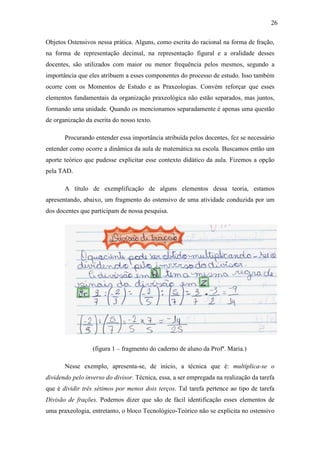 26
Objetos Ostensivos nessa prática. Alguns, como escrita do racional na forma de fração,
na forma de representação decimal, na representação figural e a oralidade desses
docentes, são utilizados com maior ou menor frequência pelos mesmos, segundo a
importância que eles atribuem a esses componentes do processo de estudo. Isso também
ocorre com os Momentos de Estudo e as Praxeologias. Convém reforçar que esses
elementos fundamentais da organização praxeológica não estão separados, mas juntos,
formando uma unidade. Quando os mencionamos separadamente é apenas uma questão
de organização da escrita do nosso texto.
Procurando entender essa importância atribuída pelos docentes, fez se necessário
entender como ocorre a dinâmica da aula de matemática na escola. Buscamos então um
aporte teórico que pudesse explicitar esse contexto didático da aula. Fizemos a opção
pela TAD.
A título de exemplificação de alguns elementos dessa teoria, estamos
apresentando, abaixo, um fragmento do ostensivo de uma atividade conduzida por um
dos docentes que participam de nossa pesquisa.
Divisão de fração
O quociente pode ser obtido multiplicando-se o
dividendo pelo inverso do divisor.
A divisão em Q tem a mesma regra de
sinais da divisão em Z
(figura 1 – fragmento do caderno de aluno da Profª. Maria.)
Nesse exemplo, apresenta-se, de início, a técnica que é: multiplica-se o
dividendo pelo inverso do divisor. Técnica, essa, a ser empregada na realização da tarefa
que é dividir três sétimos por menos dois terços. Tal tarefa pertence ao tipo de tarefa
Divisão de frações. Podemos dizer que são de fácil identificação esses elementos de
uma praxeologia, entretanto, o bloco Tecnológico-Teórico não se explicita no ostensivo